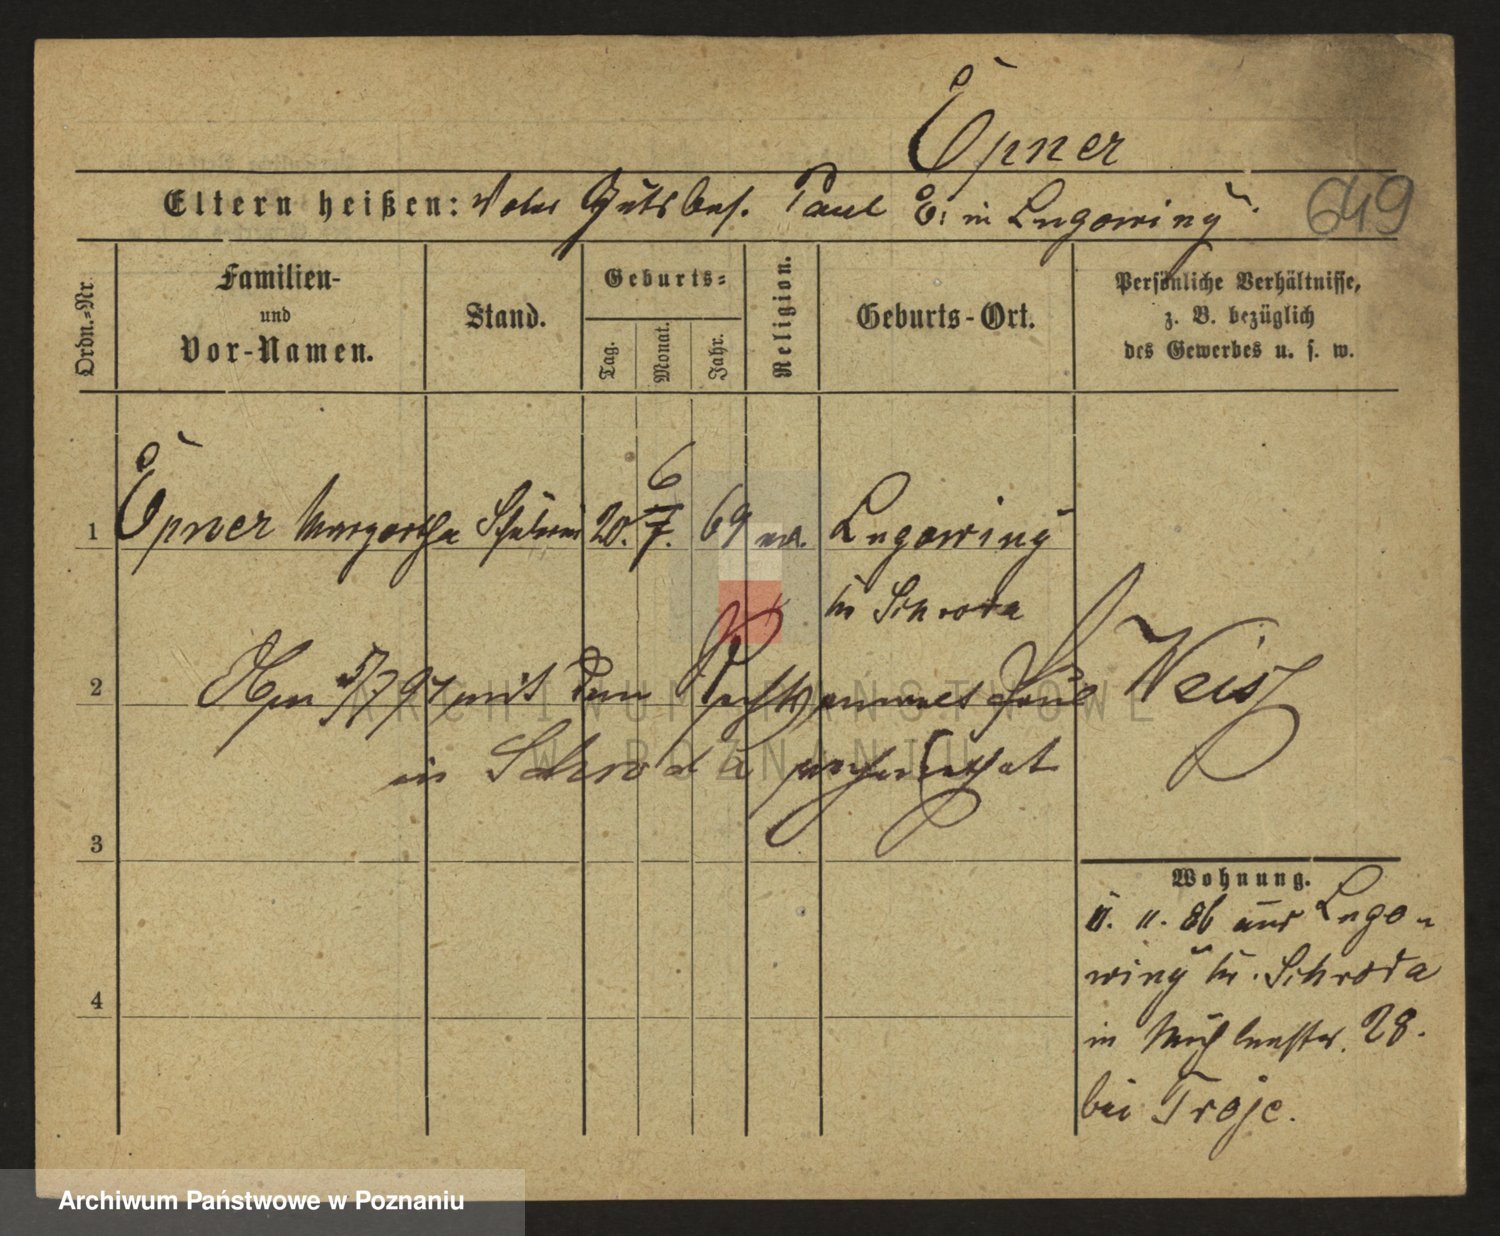 Epner
Eltern heißen: Vater Gutsbes. Paul E. in Lugowiny. 649
Ordn.-Nr.
Familien-
und
Vor-Namen.
Stand.
Geburts-
Tag.
Monat.
Jahr.
Religion.
Geburts-Ort.
Persönliche Verhältnisse,
z. B. bezüglich
des Gewerbes u. s. w.
6
1 Epner Margarethe Schülerin 20. 7. 69 Lugowiny
Kr Schroda
2 5/7 97 mit dem Rechtsanwalt Weiss
in Schroda verheirathet
3
Wohnung.
86 aus Lugo-
winy Kr. Schroda
4
in Mühlenstr. 28.
bei Troje.
ARCHIWUM PAŃSTWOWE
W POZNANIU
Archiwum Państwowe w Poznaniu